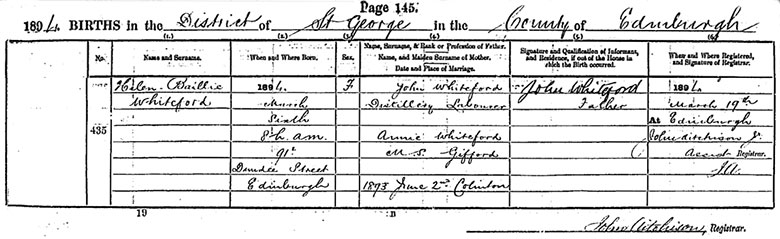 Page 145.
1894. BIRTHS in the District of St George in the County of Edinburgh
(1.) (2.) (3.) (4.) (5.) (6.)
No. Name and Surname. When and Where Born. Sex. Name, Surname, & Rank or Profession of Father. Name, and Maiden Surname of Mother. Date and Place of Marriage. Signature and Qualification of Informant, and Residence, if out of the House in which the Birth occurred. When and Where Registered, and Signature of Registrar.
Helen Baillie 1894. F John Whiteford John Whiteford 1894
Whiteford March Distillery Labourer Father March 19th
Sixth At Edinburgh
435 8h am. Annie Whiteford John Aitchison Jr
91 M.S. Gifford Assist Registrar.
Dundee Street JA.
Edinburgh 1893 June 2nd Colinton
19 B
John Aitchison, Registrar.